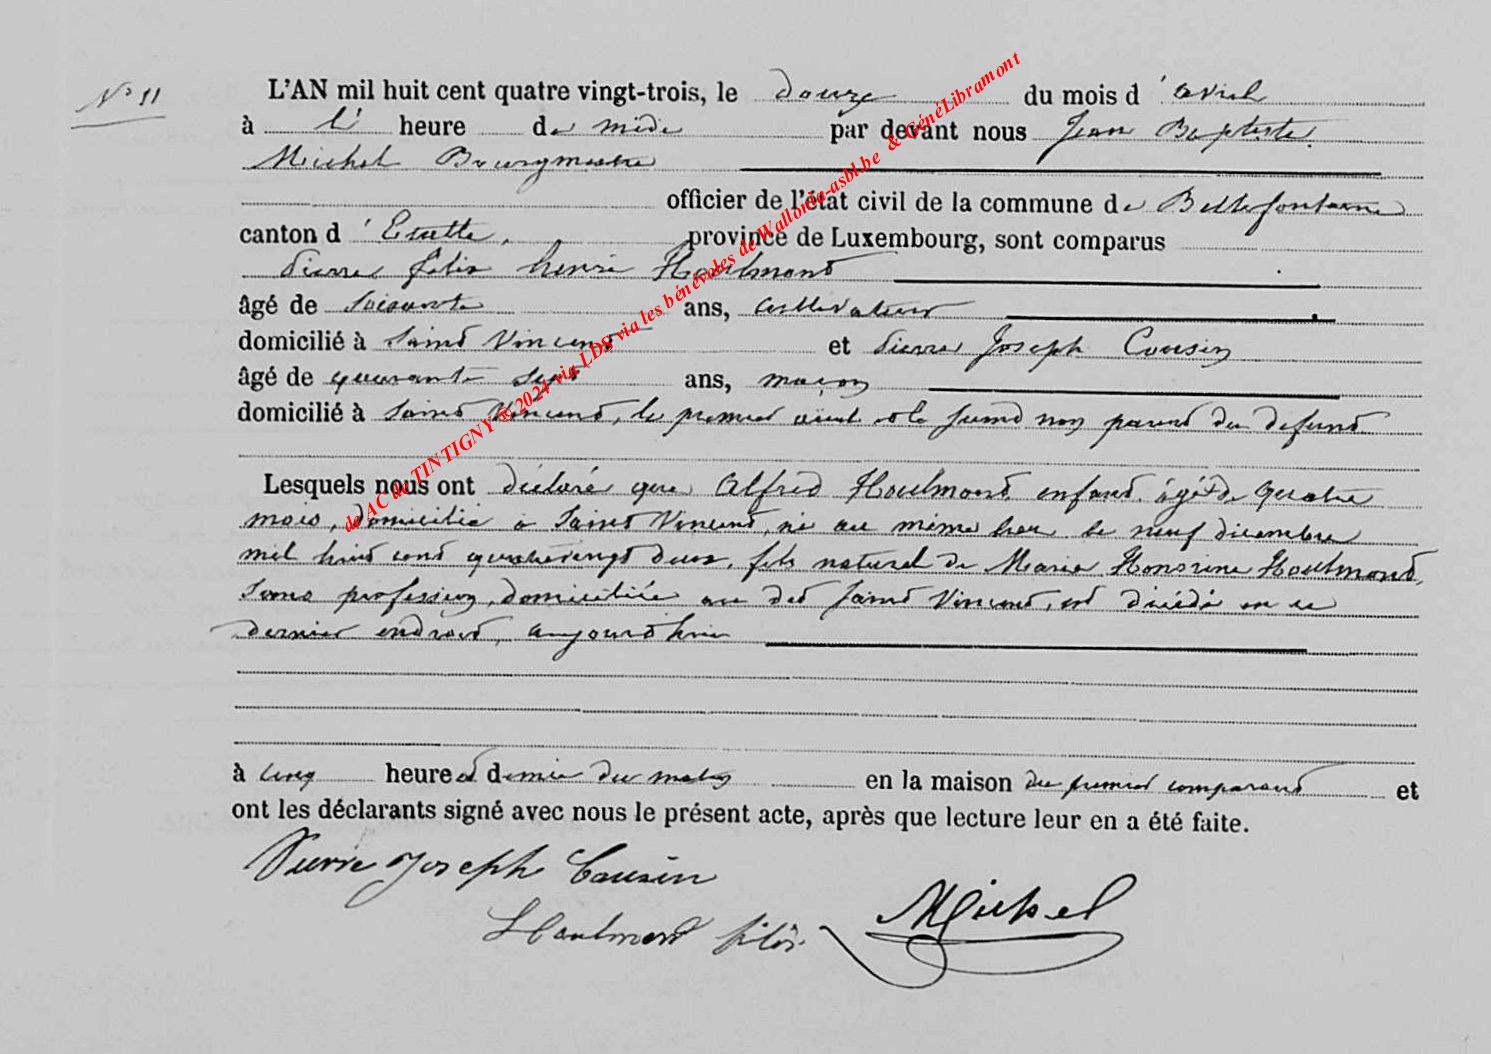 N° 11
L'AN mil huit cent quatre vingt-trois, le douze du mois d'avril
à l' heure de midi par devant nous Jean Baptiste
Michel Bourgmestre
officier de l'état civil de la commune de Bellefontaine
canton d'Etalle, province de Luxembourg, sont comparus
Pierre félix henri Houlmont
âgé de soixante ans, cultivateur
domicilié à Saint Vincent et Pierre Joseph Cousin
âgé de quarante sept ans, maçon
domicilié à Saint Vincent, le premier aieul et le second non parent du defunt
Lesquels nous ont déclaré que Alfred Houlmont enfant âgé de quatre
mois, domicilié a Saint Vincent, ne au même lieu le neuf décembre
mil huit cent quatrevingt deux, fils naturel de Marie Honorine Houlmont,
sans profession, domiciliée au dit Saint Vincent, est décédé en ce
dernier endroit, aujourd'hui
à cinq heure et demie du matin en la maison du premier comparant et
ont les déclarants signé avec nous le présent acte, après que lecture leur en a été faite.
Pierre Joseph Cousin
Houlmont félix
Michel
de AC de TINTIGNY © 2024 via LDS via les bénévoles de Wallonia-asbl.be & GénéLibramont